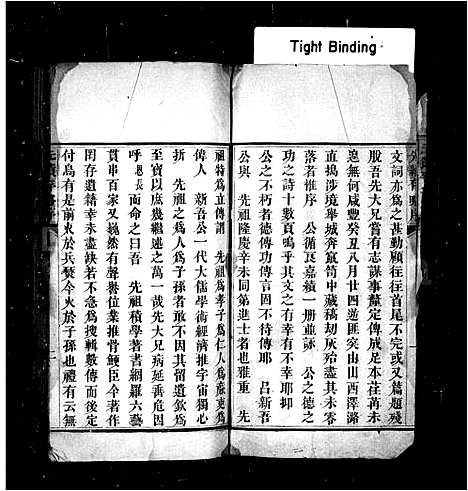 Tight Binding
文詞亦爲之甚勤願往往首尾不完又篇題殘
股吾先大兄嘗有志謀事釐定俾成足本荏苒未
遑無何咸豐癸丑八月廿四遊匪突由山西潞
直搗涉境舉城奔竄笥中藏稿刧灰殆盡其未零
落者惟序 公循良嘉績一册並詠 公之德之
功之詩十數頁嗚乎其文之有幸有不幸耶抑
公之不朽者德傳功傳言固不待傳耶 呂新吾
公與 先祖隆慶辛未同第進士者也雅重 先
祖特爲立傳謂 先祖爲孝子爲仁人爲
偉人 新吾公一代大儒學術經濟推宇宙獨心
折 先祖之爲人爲子孫者敢不因其留遺欽爲
至寶以庶幾繼述之萬一哉先大兄病延垂危因
呼 長而命之曰吾 先祖積學著書網羅六藝
貫串百家又巍然有聲譽位業推骨鯁臣今著作
罔存遺籍幸未盡缺若不急爲搜輯數傳而後定
付烏有是前火於兵燹今火於子孫也禮有云無